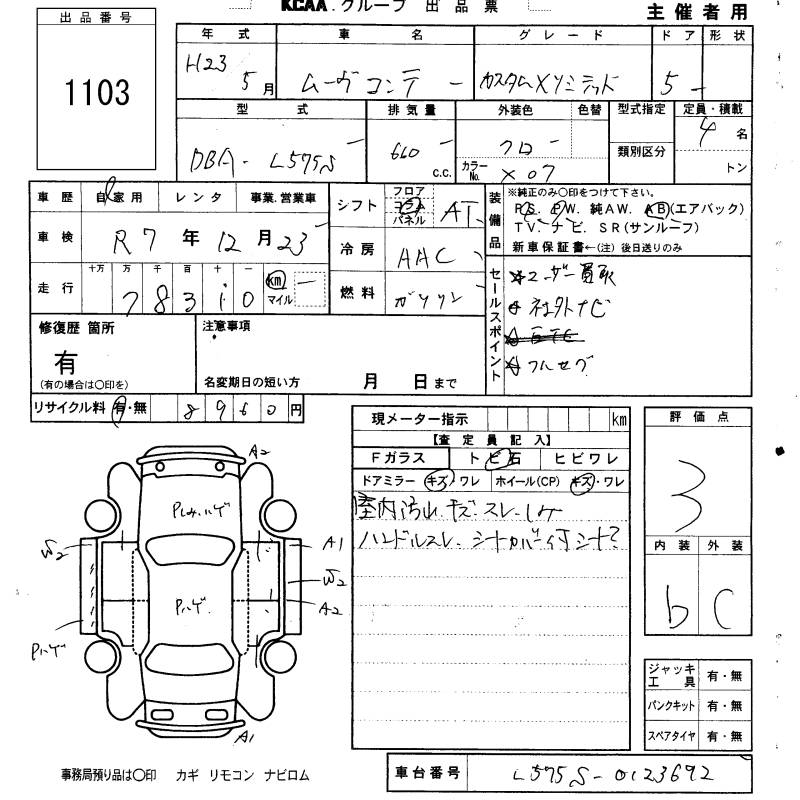 KCAA.グループ 出品票
主催者用
出品番号
1103
年式 車名 グレード ドア 形状
H23 5月 ムーヴコンテ カスタムXリミテッド 5 -
型式 排気量 外装色 色替 型式指定 定員・積載
類別区分
DBA-L575S 660 c.c. クロ カラーNo. X07 4名
トン
車歴 自家用 レンタ 事業.営業車
シフト フロア コラム パネル AT
装備品
※純正のみ○印をつけて下さい。
PS. PW. 純AW. AB(エアバック)
TV. ナビ. SR(サンルーフ)
新車保証書←(注)後日送りのみ
車検 R7年12月23
冷房 AAC
走行 十万 万 千 百 十 一
78310 km マイル
燃料 ガソリン
セールスポイント
ユーザー買取
社外ナビ
ETC
フルセグ
修復歴 箇所
有
(有の場合は○印を)
注意事項
名変期日の短い方 月 日まで
リサイクル料 有・無 8960円
現メーター指示 km
【査定員記入】
Fガラス トビ石 ヒビワレ
ドアミラー キズ・ワレ ホイール(CP) キズ・ワレ
室内汚れ.キズ.スレ.シケ
ハンドルスレ.シートカバー付シート?
評価点
3
内装 外装
b C
A2
Pしみ.ハゲ
W2
A1
W2
Pハゲ
A2
Pハゲ
A1
ジャッキ工具 有・無
パンクキット 有・無
スペアタイヤ 有・無
事務局預り品は○印 カギ リモコン ナビロム
車台番号 L575S-0123692